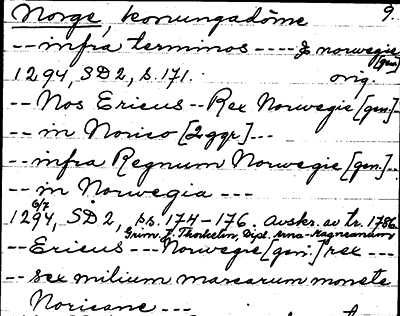 Norge, konungadöme 9.
-- infra terminos ---- & norwegie [gen]
1294, SD2, s. 171. orig.
-- Nos Ericus -- Rex Norwegie [gen.] --
-- in Norico [2 ggr] ---
-- infra Regnum Norwegie [gen.] --
-- in Norwegia ---
6/7
1294, SD2, ss. 174-176. Avskr. av tr. 1786
Grim. J. Thorkelin, Dipl. Arna-Magnæanum
-- Ericus --- Norwegie [gen.] rex ---
-- sex milium marcarum monete
Noricane ---